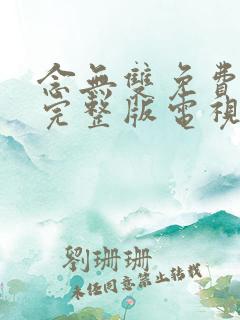 念無雙免費
完整版電視
劉珊珊
未经同意禁止转载